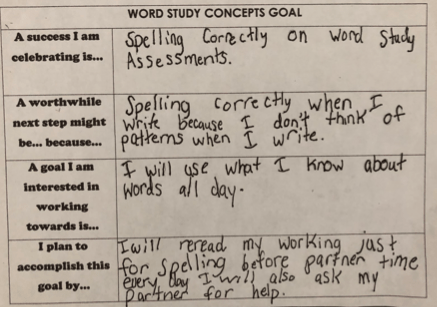 WORD STUDY CONCEPTS GOAL
A success I am
celebrating is...
Spelling Correctly on Word Study
Assessments.
A worthwhile
next step might
be... because...
Spelling correctly when I
write because I don't think of
patterns when I write.
A goal I am
interested in
working
towards is...
I will use what I know about
words all day.
I plan to
accomplish this
goal by...
I will reread my working just
for spelling before partner time
every day I will also ask my
partner for help.